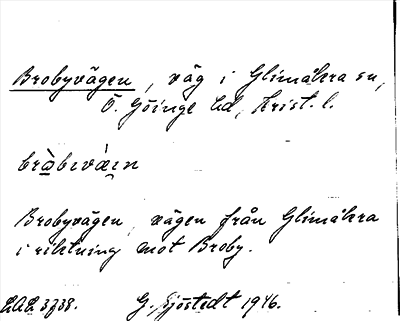 Brobyvägen, väg i Glimåkra sn,
Ö. Göinge hd, Krist. l.
bràbıvàın
Brobyvägen, vägen från Glimåkra
i riktning mot Broby.
LAL 3738. G. Sjöstedt 1946.